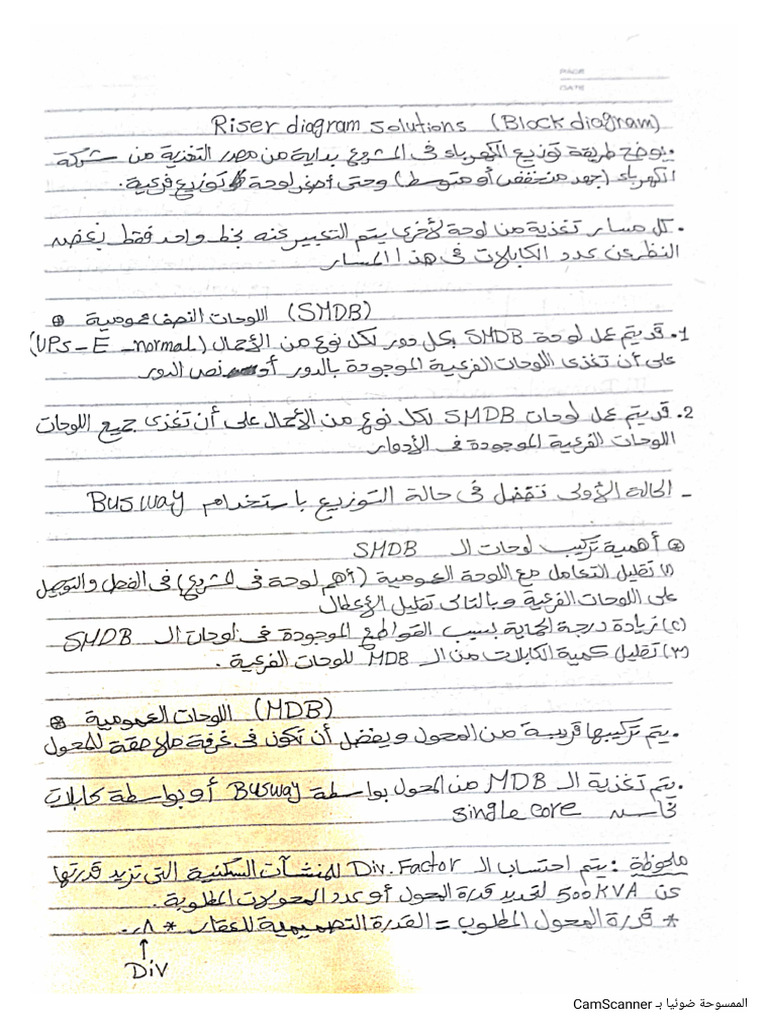 PAGE
DATE
Riser diagram solutions (Block diagram)
• يوضح طريقة توزيع الكهرباء فى المشروع بداية من مصدر التغذية من شركة
الكهرباء (جهد منخفض أو متوسط) وحتى أصغر لوحة توزيع فرعية.
• كل مسار تغذية من لوحة لأخرى يتم التعبير عنه بخط واحد فقط بغض
النظر عن عدد الكابلات فى هذا المسار
⊕ اللوحات النصف عمومية (SMDB)
1. قد يتم عمل لوحة SMDB بكل دور لكل نوع من الأحمال (UPS - E - normal)
على أن تغذى اللوحات الفرعية الموجودة بالدور أو نص الدور
2. قد يتم عمل لوحات SMDB لكل نوع من الأحمال على أن تغذى جميع اللوحات
اللوحات الفرعية الموجودة فى الأدوار
- الحالة الأولى تفضل فى حالة التوزيع باستخدام Busway
⊕ أهمية تركيب لوحات الـ SMDB
١) تقليل التعامل مع اللوحة العمومية (أهم لوحة فى المشروع) فى الفصل والتوصيل
على اللوحات الفرعية وبالتالى تقليل الأعطال
٢) زيادة درجة الحماية بسبب القواطع الموجودة فى لوحات الـ SMDB
٣) تقليل كمية الكابلات من الـ MDB للوحات الفرعية.
⊕ اللوحات العمومية (MDB)
• يتم تركيبها قريبة من المحول ويفضل أن تكون فى غرفة ملاصقة للمحول
• يتم تغذية الـ MDB من المحول بواسطة Busway أو بواسطة كابلات
نحاس single core
ملحوظة: يتم احتساب الـ Div. Factor للمنشآت السكنية التى تزيد قدرتها
عن 500 KVA لتحديد قدرة المحول أو عدد المحولات المطلوبة.
* قدرة المحول المطلوب = القدرة التصميمية للعقار * ٠.٨
↑
Div
الممسوحة ضوئيا بـ CamScanner